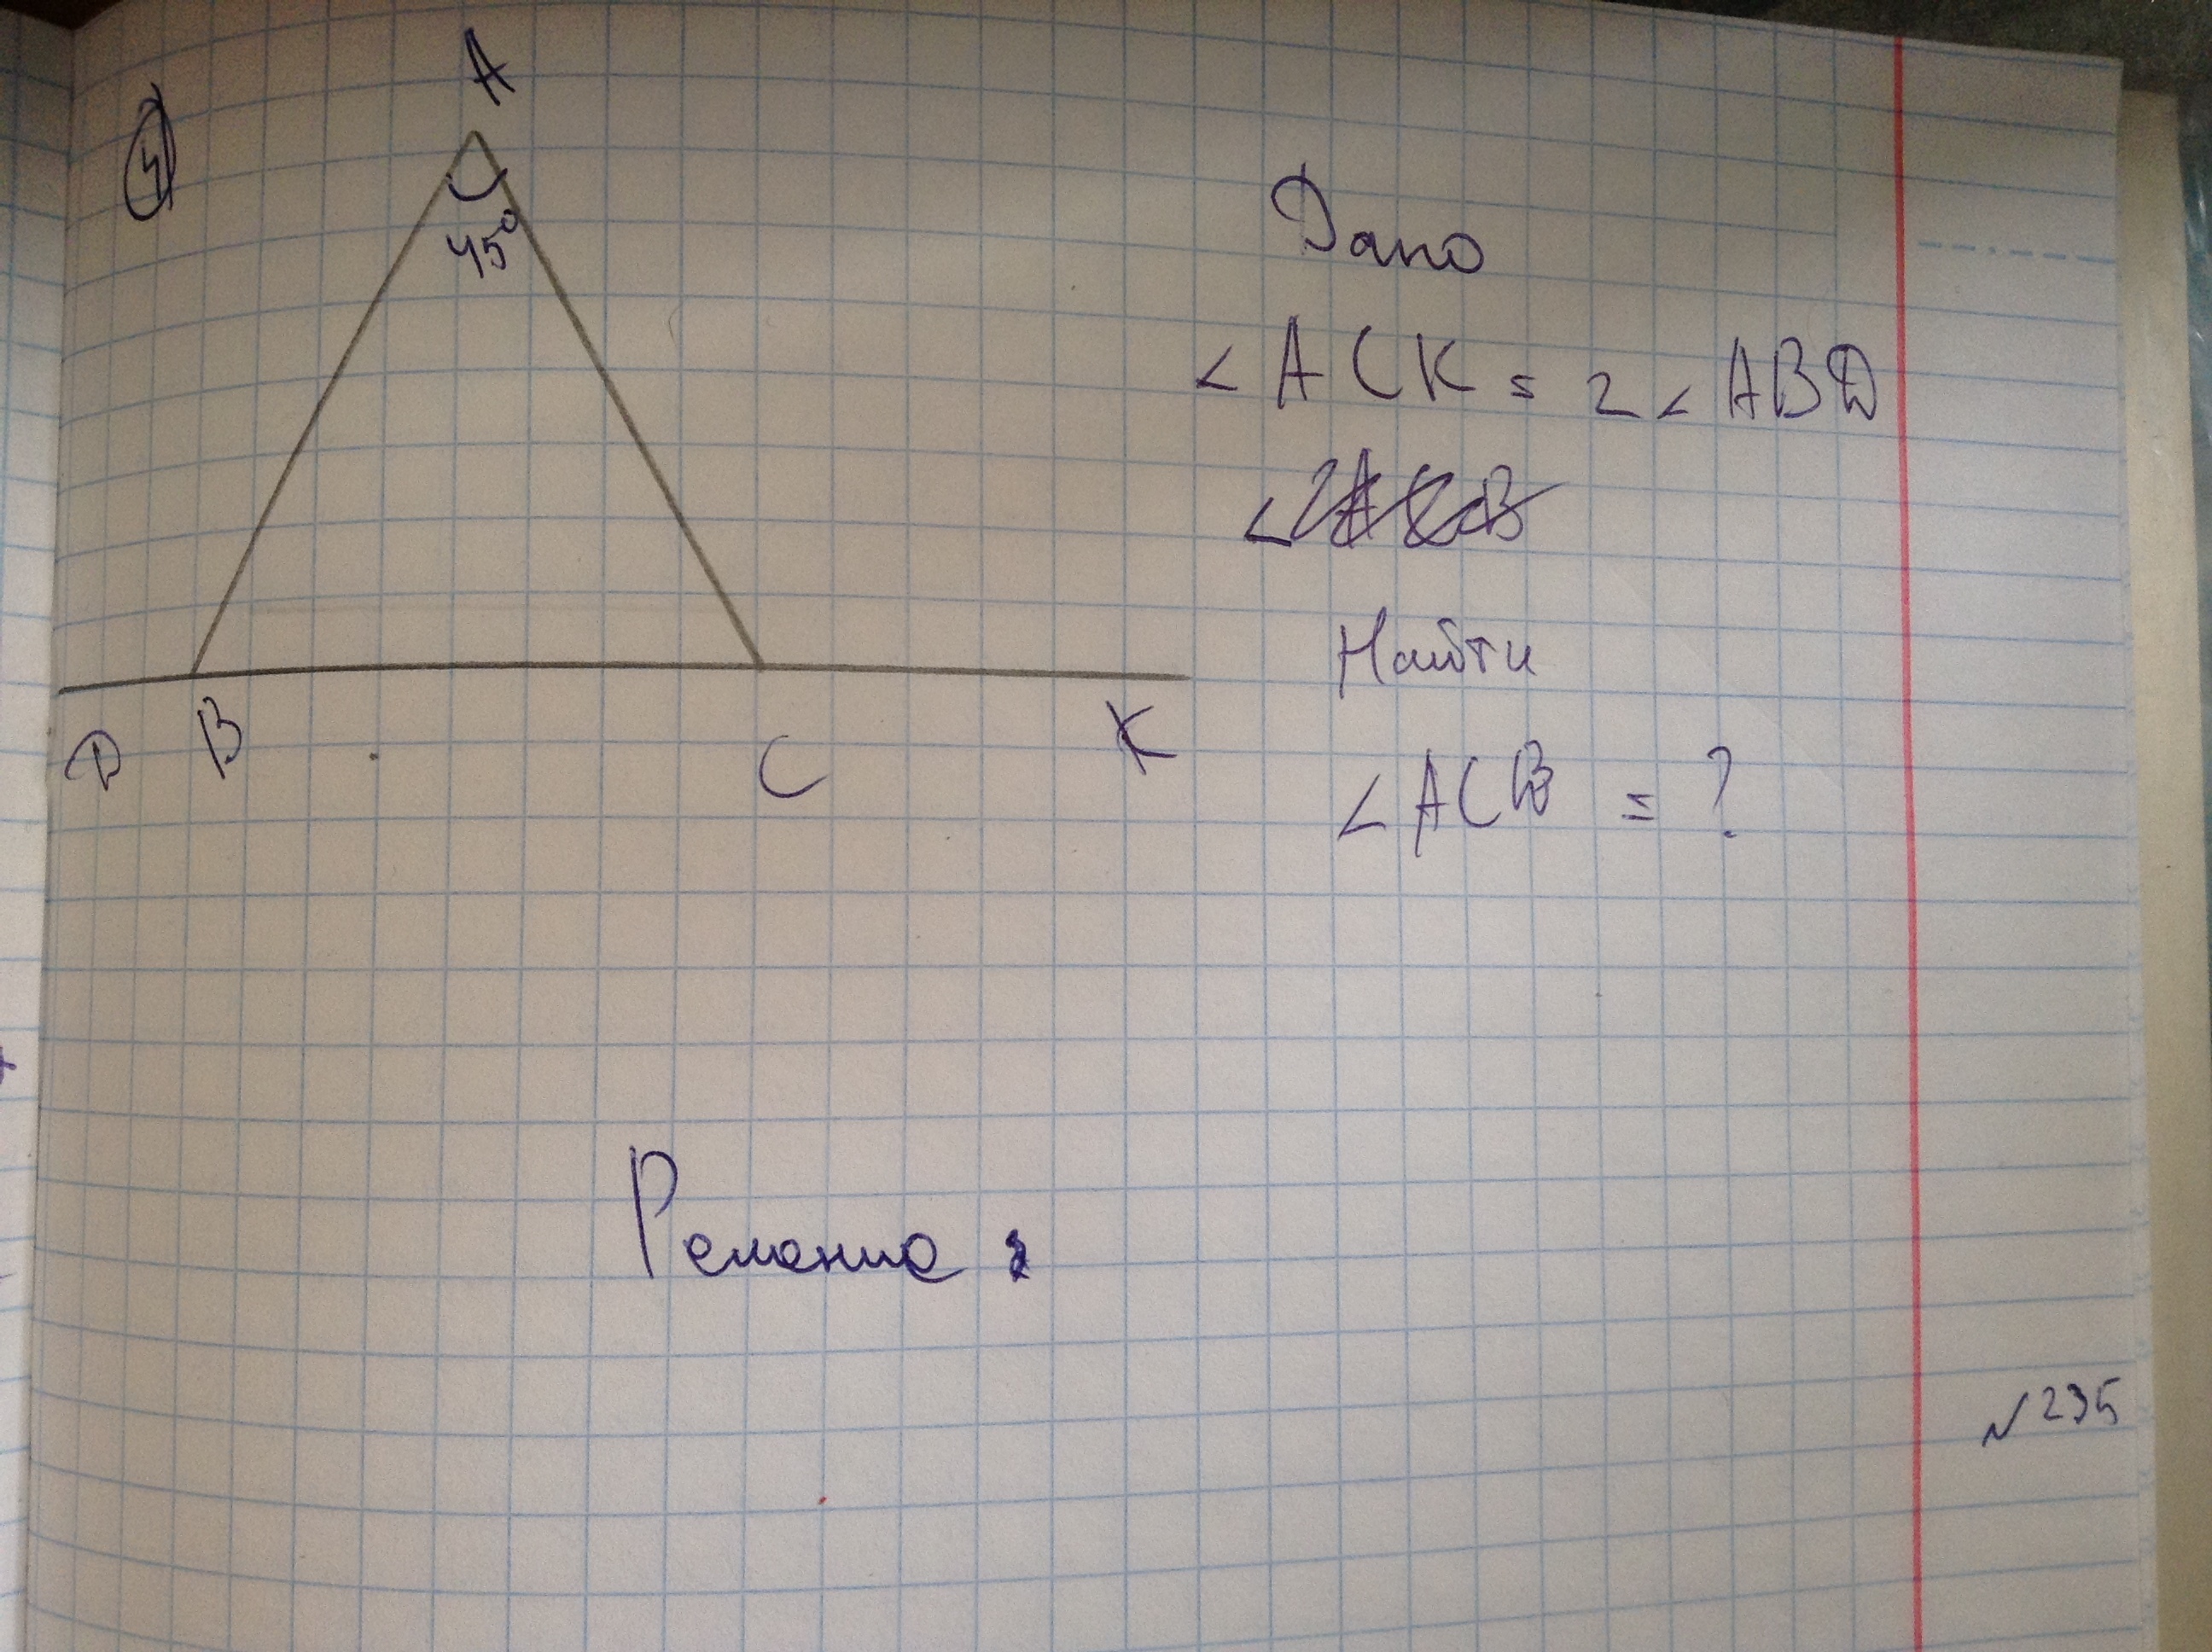 4
A
45°
D B C K
Дано
∠ACK = 2∠ABD
Найти
∠ACB = ?
Решение:
№235